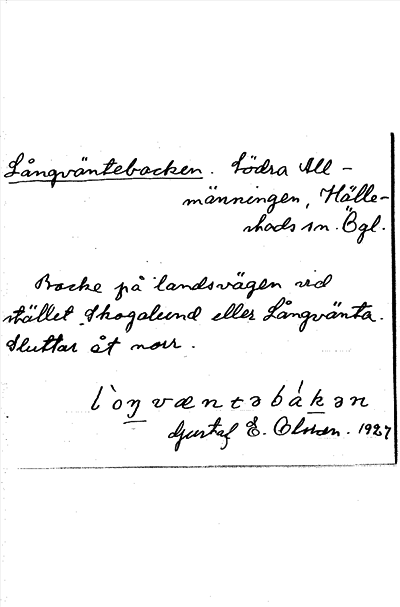 Långväntebacken. Södra All-
männingen, Hälle-
stads sn. Ögl.
Backe på landsvägen vid
stället Skogalund eller Långvänta.
Sluttar åt norr.
l`oŋ væntəbákən
Gustaf E. Olsson. 1927